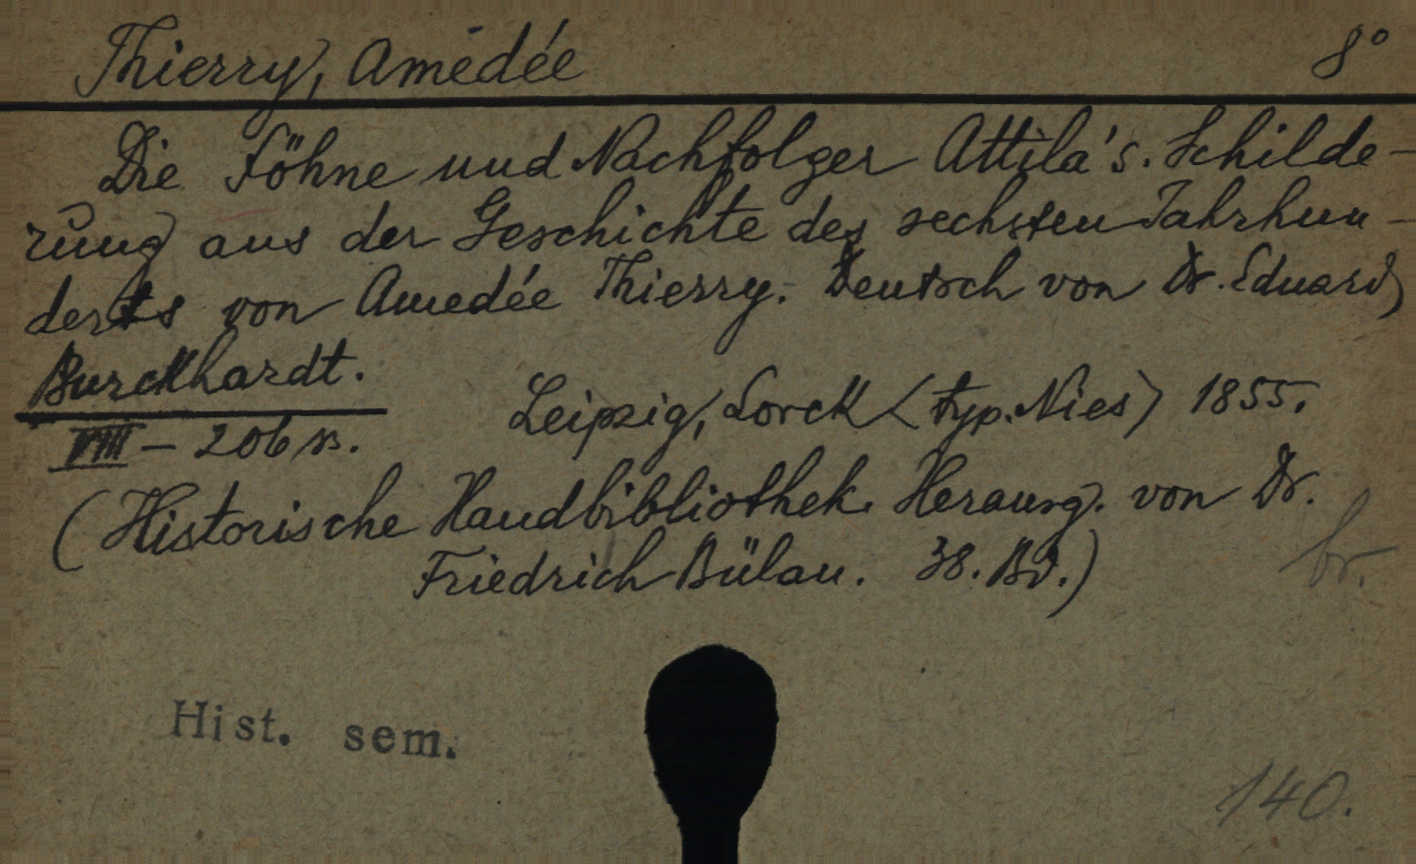 Thierry, Amedée 8°
Die Söhne und Nachfolger Attila's. Schilde-
rung aus der Geschichte des sechsten Jahrhun-
derts von Amedée Thierry. Deutsch von Dr. Eduard
Burckhardt.
Leipzig, Lorck <typ. Nies> 1855.
VIII - 206 s.
(Historische Handbibliothek. Herausg. von Dr.
Friedrich Bülau. 38. Bd.)
br.
Hist. sem.
140.